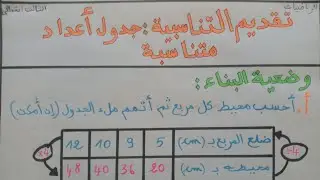 الرياضيات الثالث ابتدائي
تقديم التناسبية : جدول أعداد
متناسبة
وضعية البناء :
أ. أحسب محيط كل مربع ثم أتمم ملء الجدول (إن أمكن)
ضلع المربع بـ (cm) 5 9 10 12
محيطه بـ (cm) 20 36 40 48
÷4
×4